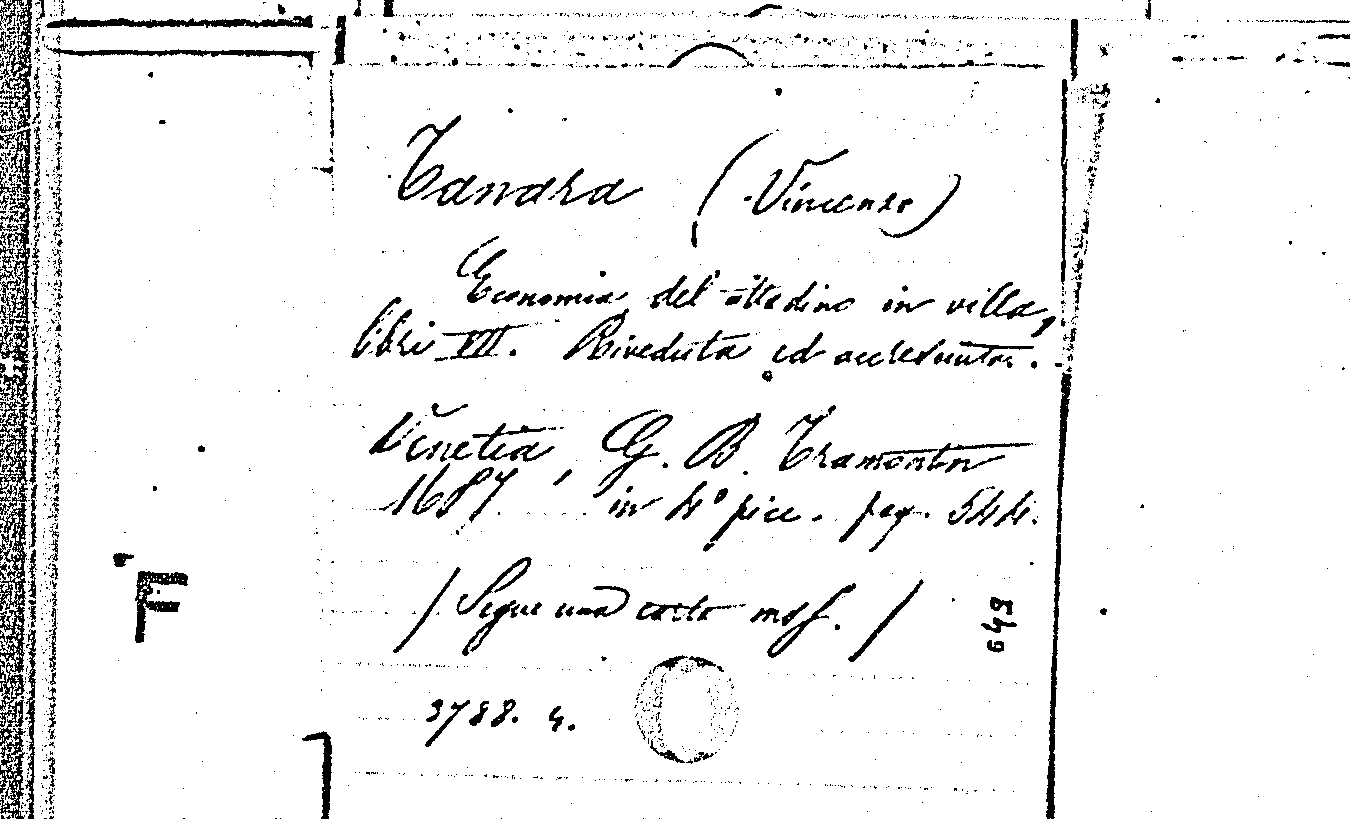 Tanara (Vincenzo)
Economia del cittadino in villa,
libri VII. Riveduta ed accresciuta.
Venetia, G. B. Tramontin
1687, in 4º picc. pag. 544.
/ Segue una carta mss. /
F
649
3788. 4.